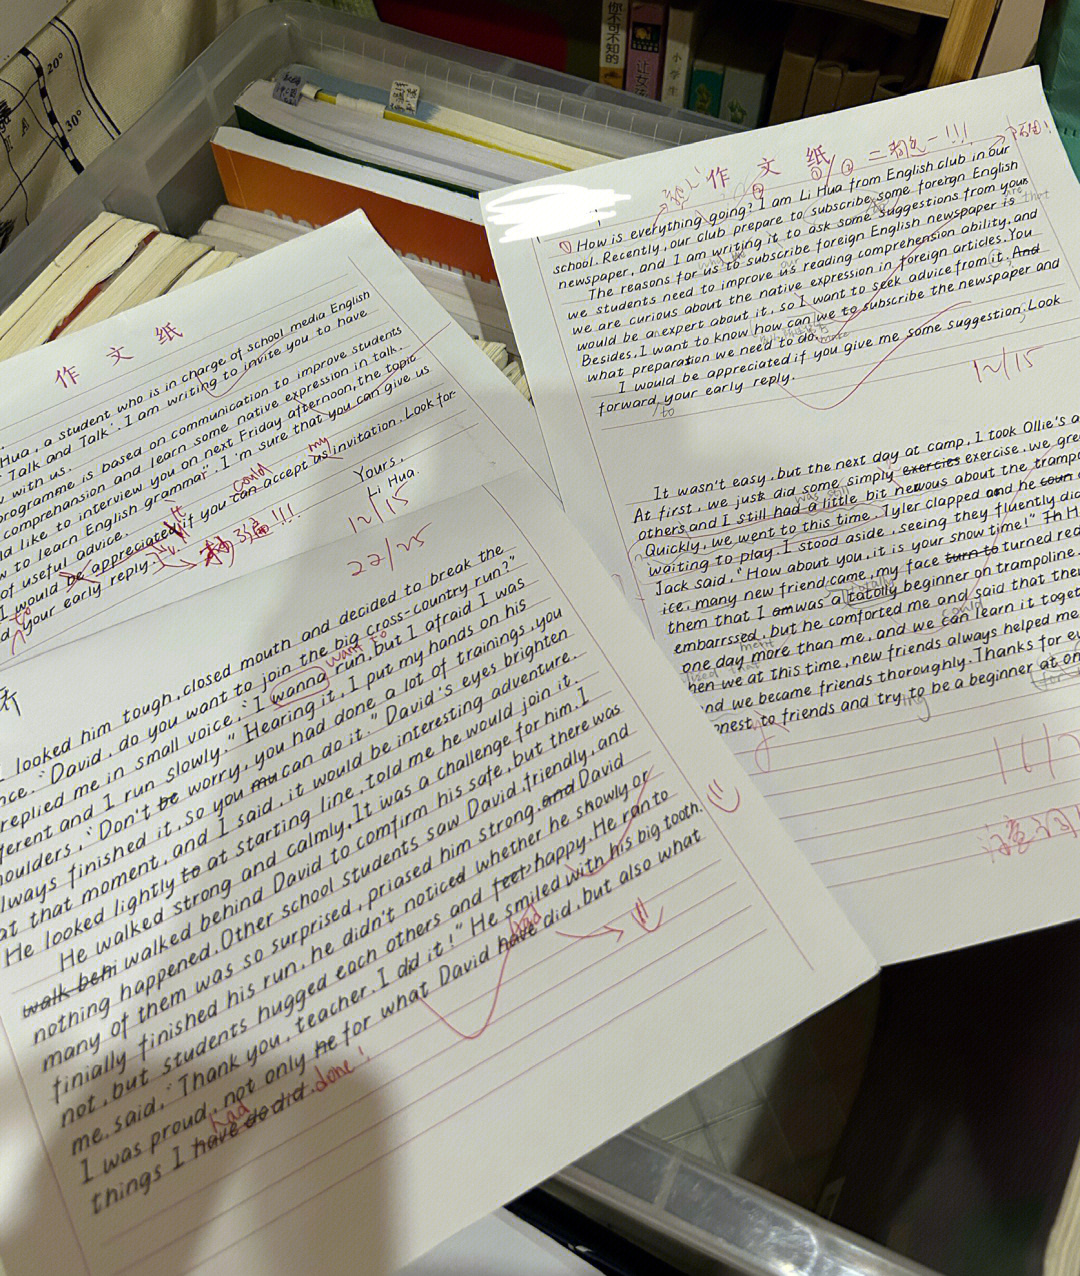 20°
30°
你不可不知的
小学生
作 文 纸
Hua, a student who is in charge of school media English
Talk and Talk". I am writing to invite you to have
with us.
programme is based on communication to improve students
comprehansion and learn some native expression in talk.
like to interview you on next Friday afternoon, the topic
to learn English grammar". I'm sure that you can give us
of useful advice.
could my
would be appreciated if you can accept us invitation. Look for-
to
your early reply.
Yours,
Li Hua.
12/15
22/25
looked him tough, closed mouth and decided to break the
"David, do you want to join the big cross-country run?"
want to
replied me in small voice, "I wanna run, but I afraid I was
ferent and I run slowly." Hearing it, I put my hands on his
houlders, "Don't be worry, you had done a lot of trainings, you
lways finished it, so you mu can do it." David's eyes brighten
at that moment, and I said, it would be interesting adventure.
He looked lightly to at starting line, told me he would join it.
He walked strong and calmly. It was a challenge for him. I
walk behi walked behind David to comfirm his safe, but there was
nothing happened. Other school students saw David, friendly, and
many of them was so surprised, priased him strong, and David
finially finished his run, he didn't noticed whether he showly or
not, but students hugged each others and feet, happy. He ran to
me, said, "Thank you, teacher. I did it!" He smiled with his big tooth.
had
I was proud, not only he for what David have did, but also what
had done!
things I have do did.
作 文 纸
① ② ③
!!!
How is everything going? I am Li Hua from English club in our
school. Recently, our club prepare to subscribe some foreign English
newspaper, and I am writing it to ask some suggestions from yours
The reasons for us to subscribe foreign English newspaper is that
we students need to improve us reading comprehension ability, and
we are curious about the native expression in foreign articles. You
would be an expert about it, so I want to seek advice from it, And
Besides, I want to know how can we to subscribe the newspaper and
what preparation we need to do.
I would be appreciated if you give me some suggestion, Look
forward, your early reply.
to
12/15
It wasn't easy, but the next day at camp, I took Ollie's a
At first, we just did some simply exercies exercise, we gre
was still
others and I still had a little bit nervous about the trampo
Quickly, we went to this time, Tyler clapped and he coun
waiting to play. I stood aside, seeing they fluently did
Jack said, "How about you, it is your show time!" Th H
ice, many new friend came, my face turn to turned red
totally
them that I am was a tatolly beginner on trampoline.
embarrssed, but he comforted me and said that the
could
one day more than me, and we can learn it toget
hen we at this time, new friends always helped me
nd we became friends thoroughly. Thanks for e
onest to friends and try to be a beginner at on
ing